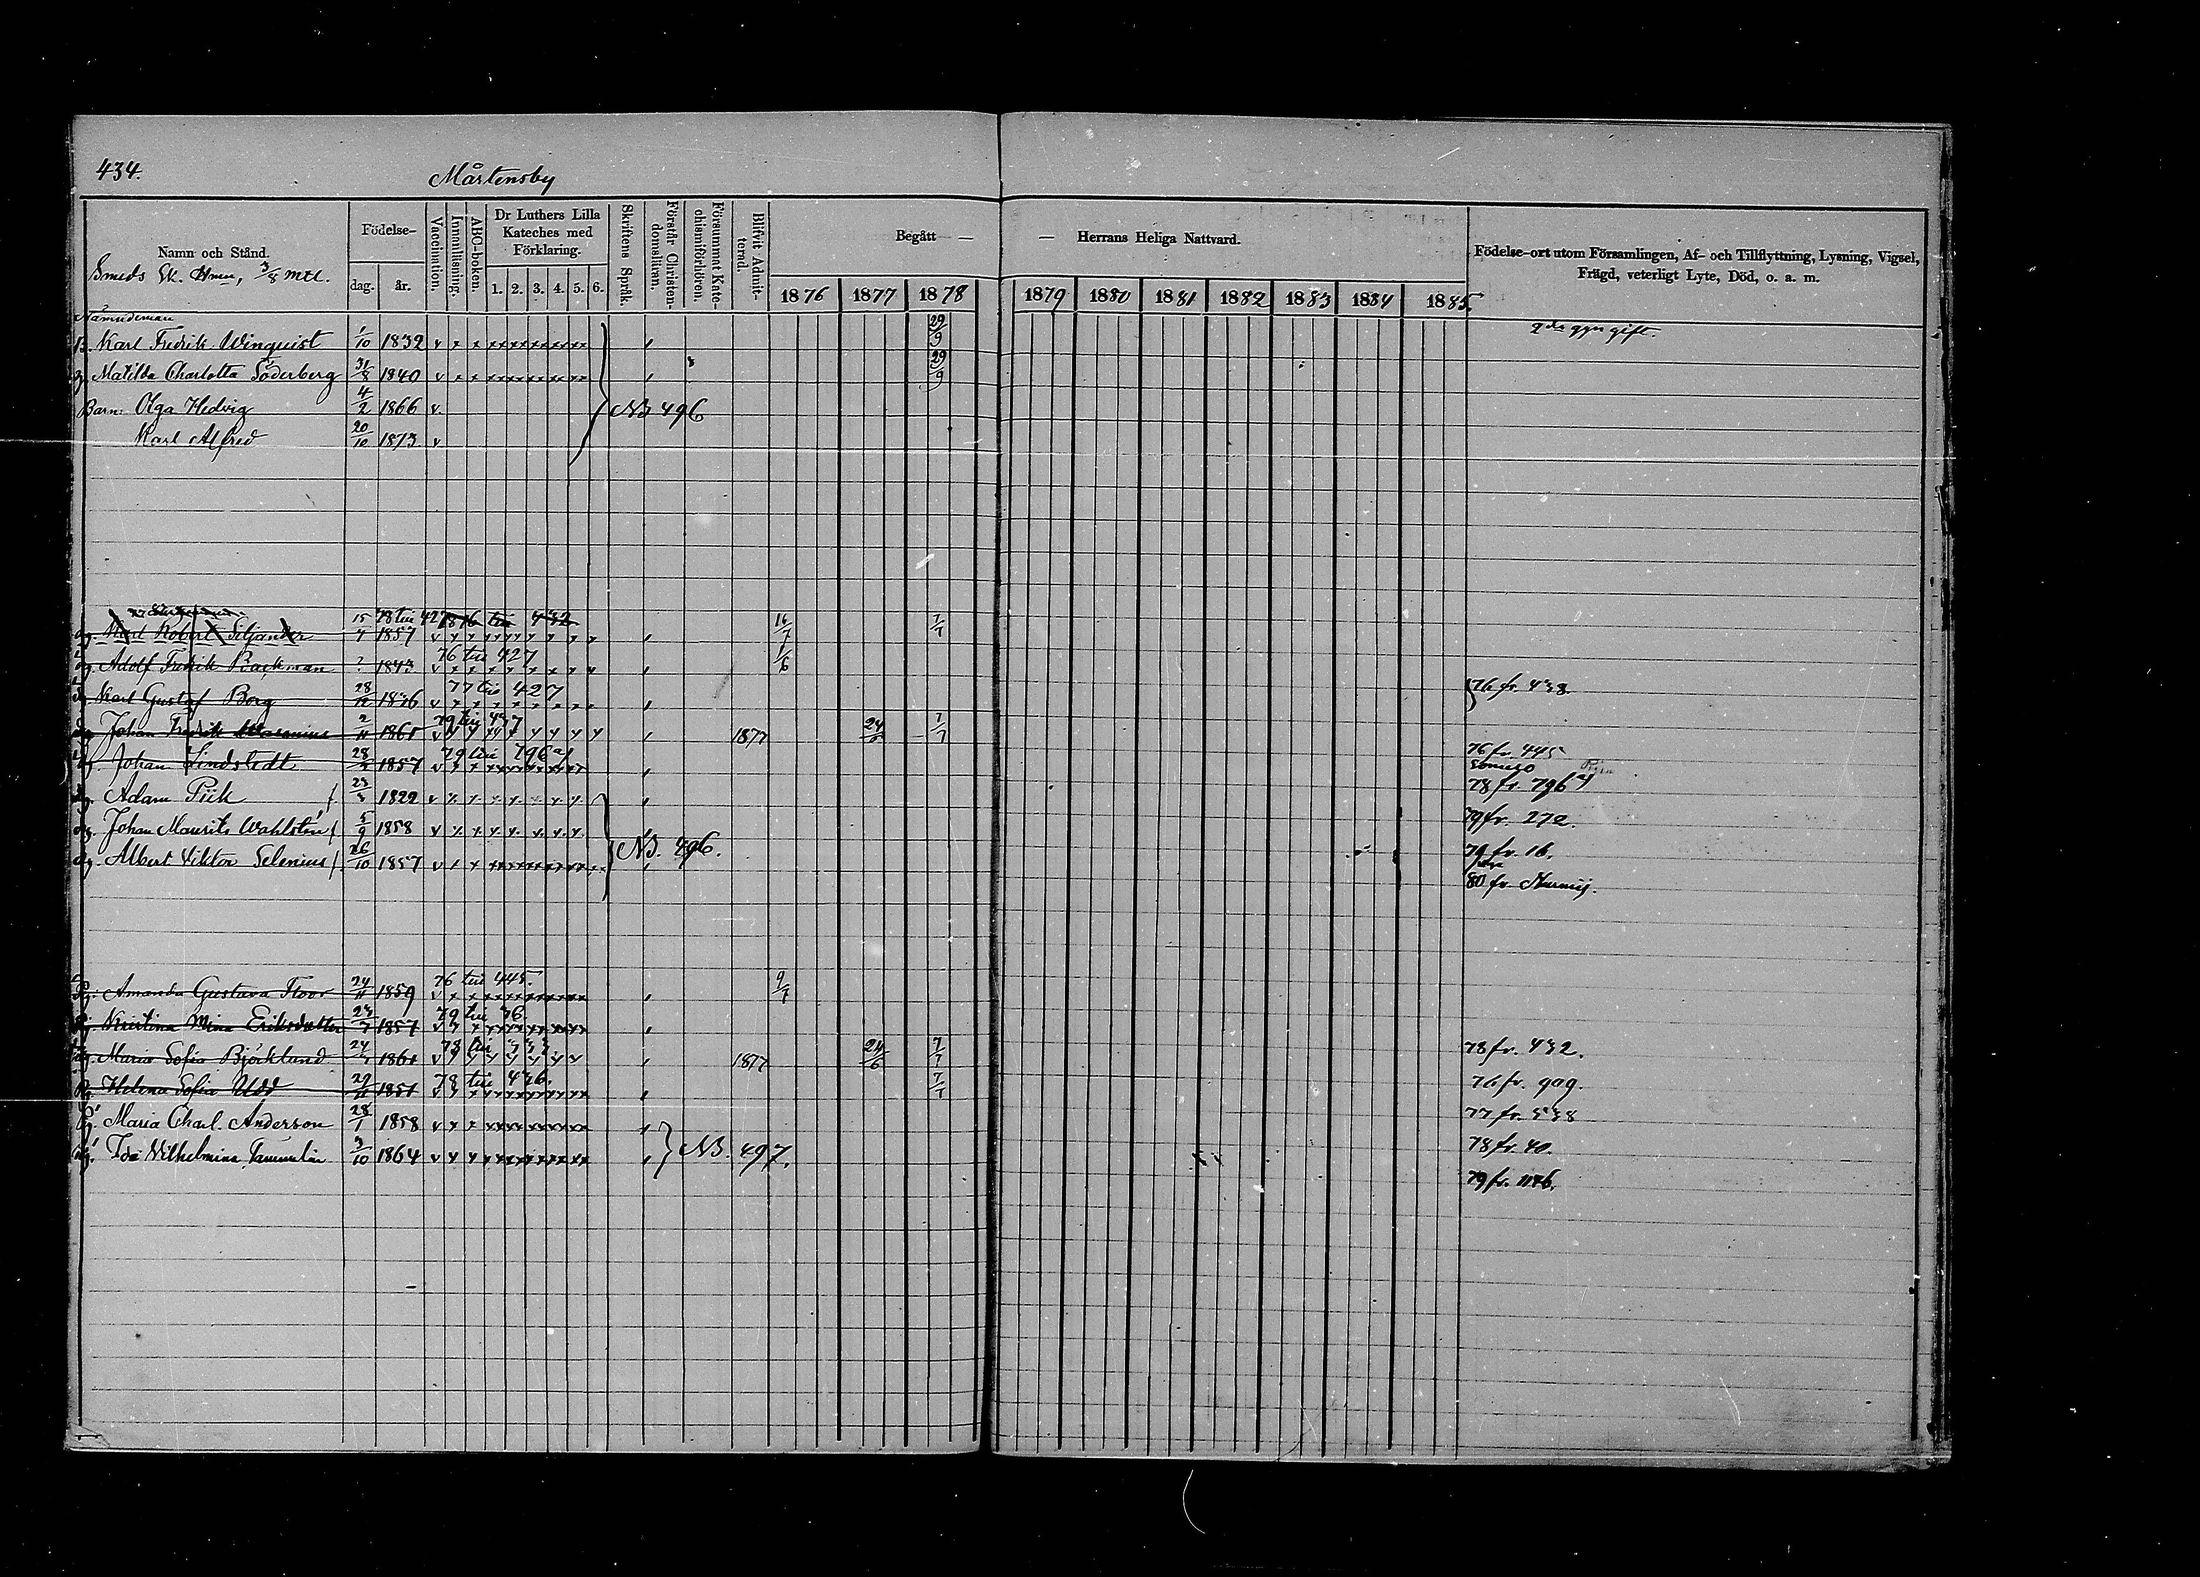 434.
Mårtensby
Namn och Stånd.
Smeds Sk. Hmn, 3/8 mtl.
Födelse-
dag. år.
Vaccination.
Innanläsning.
ABC-boken.
Dr Luthers Lilla
Kateches med
Förklaring.
1. 2. 3. 4. 5. 6.
Skriftens Språk.
Förstår Christen-
domsläran.
Försummat Kate-
chismiförhören.
Blifvit Admit-
terad.
Begått — — Herrans Heliga Nattvard.
1876 1877 1878 1879 1880 1881 1882 1883 1884 1885.
Födelse-ort utom Församlingen, Af- och Tillflyttning, Lysning, Vigsel,
Frägd, veterligt Lyte, Död, o. a. m.
Nämndeman
B. Karl Fredrik Winquist 1/10 1832 29/9 2dra ggn gift.
Matilda Charlotta Söderberg 31/8 1840 29/9
Barn: Olga Hedvig 4/2 1866 NB 496
Karl Alfred 20/10 1873
78 till 427 1876 till 432
dg. Karl Robert Siljander 15/4 1857 16/7 7/7
76 till 427
dg. Adolf Fredrik Backman 1843 1/6
77 till 427
dg Karl Gustaf Borg 28/12 1836 76 fr. 438.
79 till 437
dg. Johan Fredrik 2/11 1861 1877 24/6 7/7
79 till 796 a/
dg. Johan Lindstedt 28 1857 76 fr. 445
Somero
dg. Adam Piik 23/3 1822 78 fr. 796 a/
dg. Johan Maurits Wahlstén 5/9 1858 79 fr. 272.
NB. 496.
dg. Albert Viktor Selenius 26/10 1857 79 fr. 16.
80 fr. Nurmij.
76 till 445.
Pg. Amanda Gustava Floor 24/11 1859 9/7
79 till 76
Pg. Kristina Mina Eriksdotter 23/7 1857 78 fr. 432.
78 till 333
Pg. Maria Sofia Björklund 24 1861 1877 24/6 7/7 76 fr. 909.
78 till 436.
Pg. Helena Sofia Udd 29/11 1851 7/7 77 fr. 538
Pg. Maria Charl. Anderson 28/1 1858 78 fr. 40.
NB. 497.
dg. Ida Wilhelmina Tammelin 3/10 1864 79 fr. 1126.